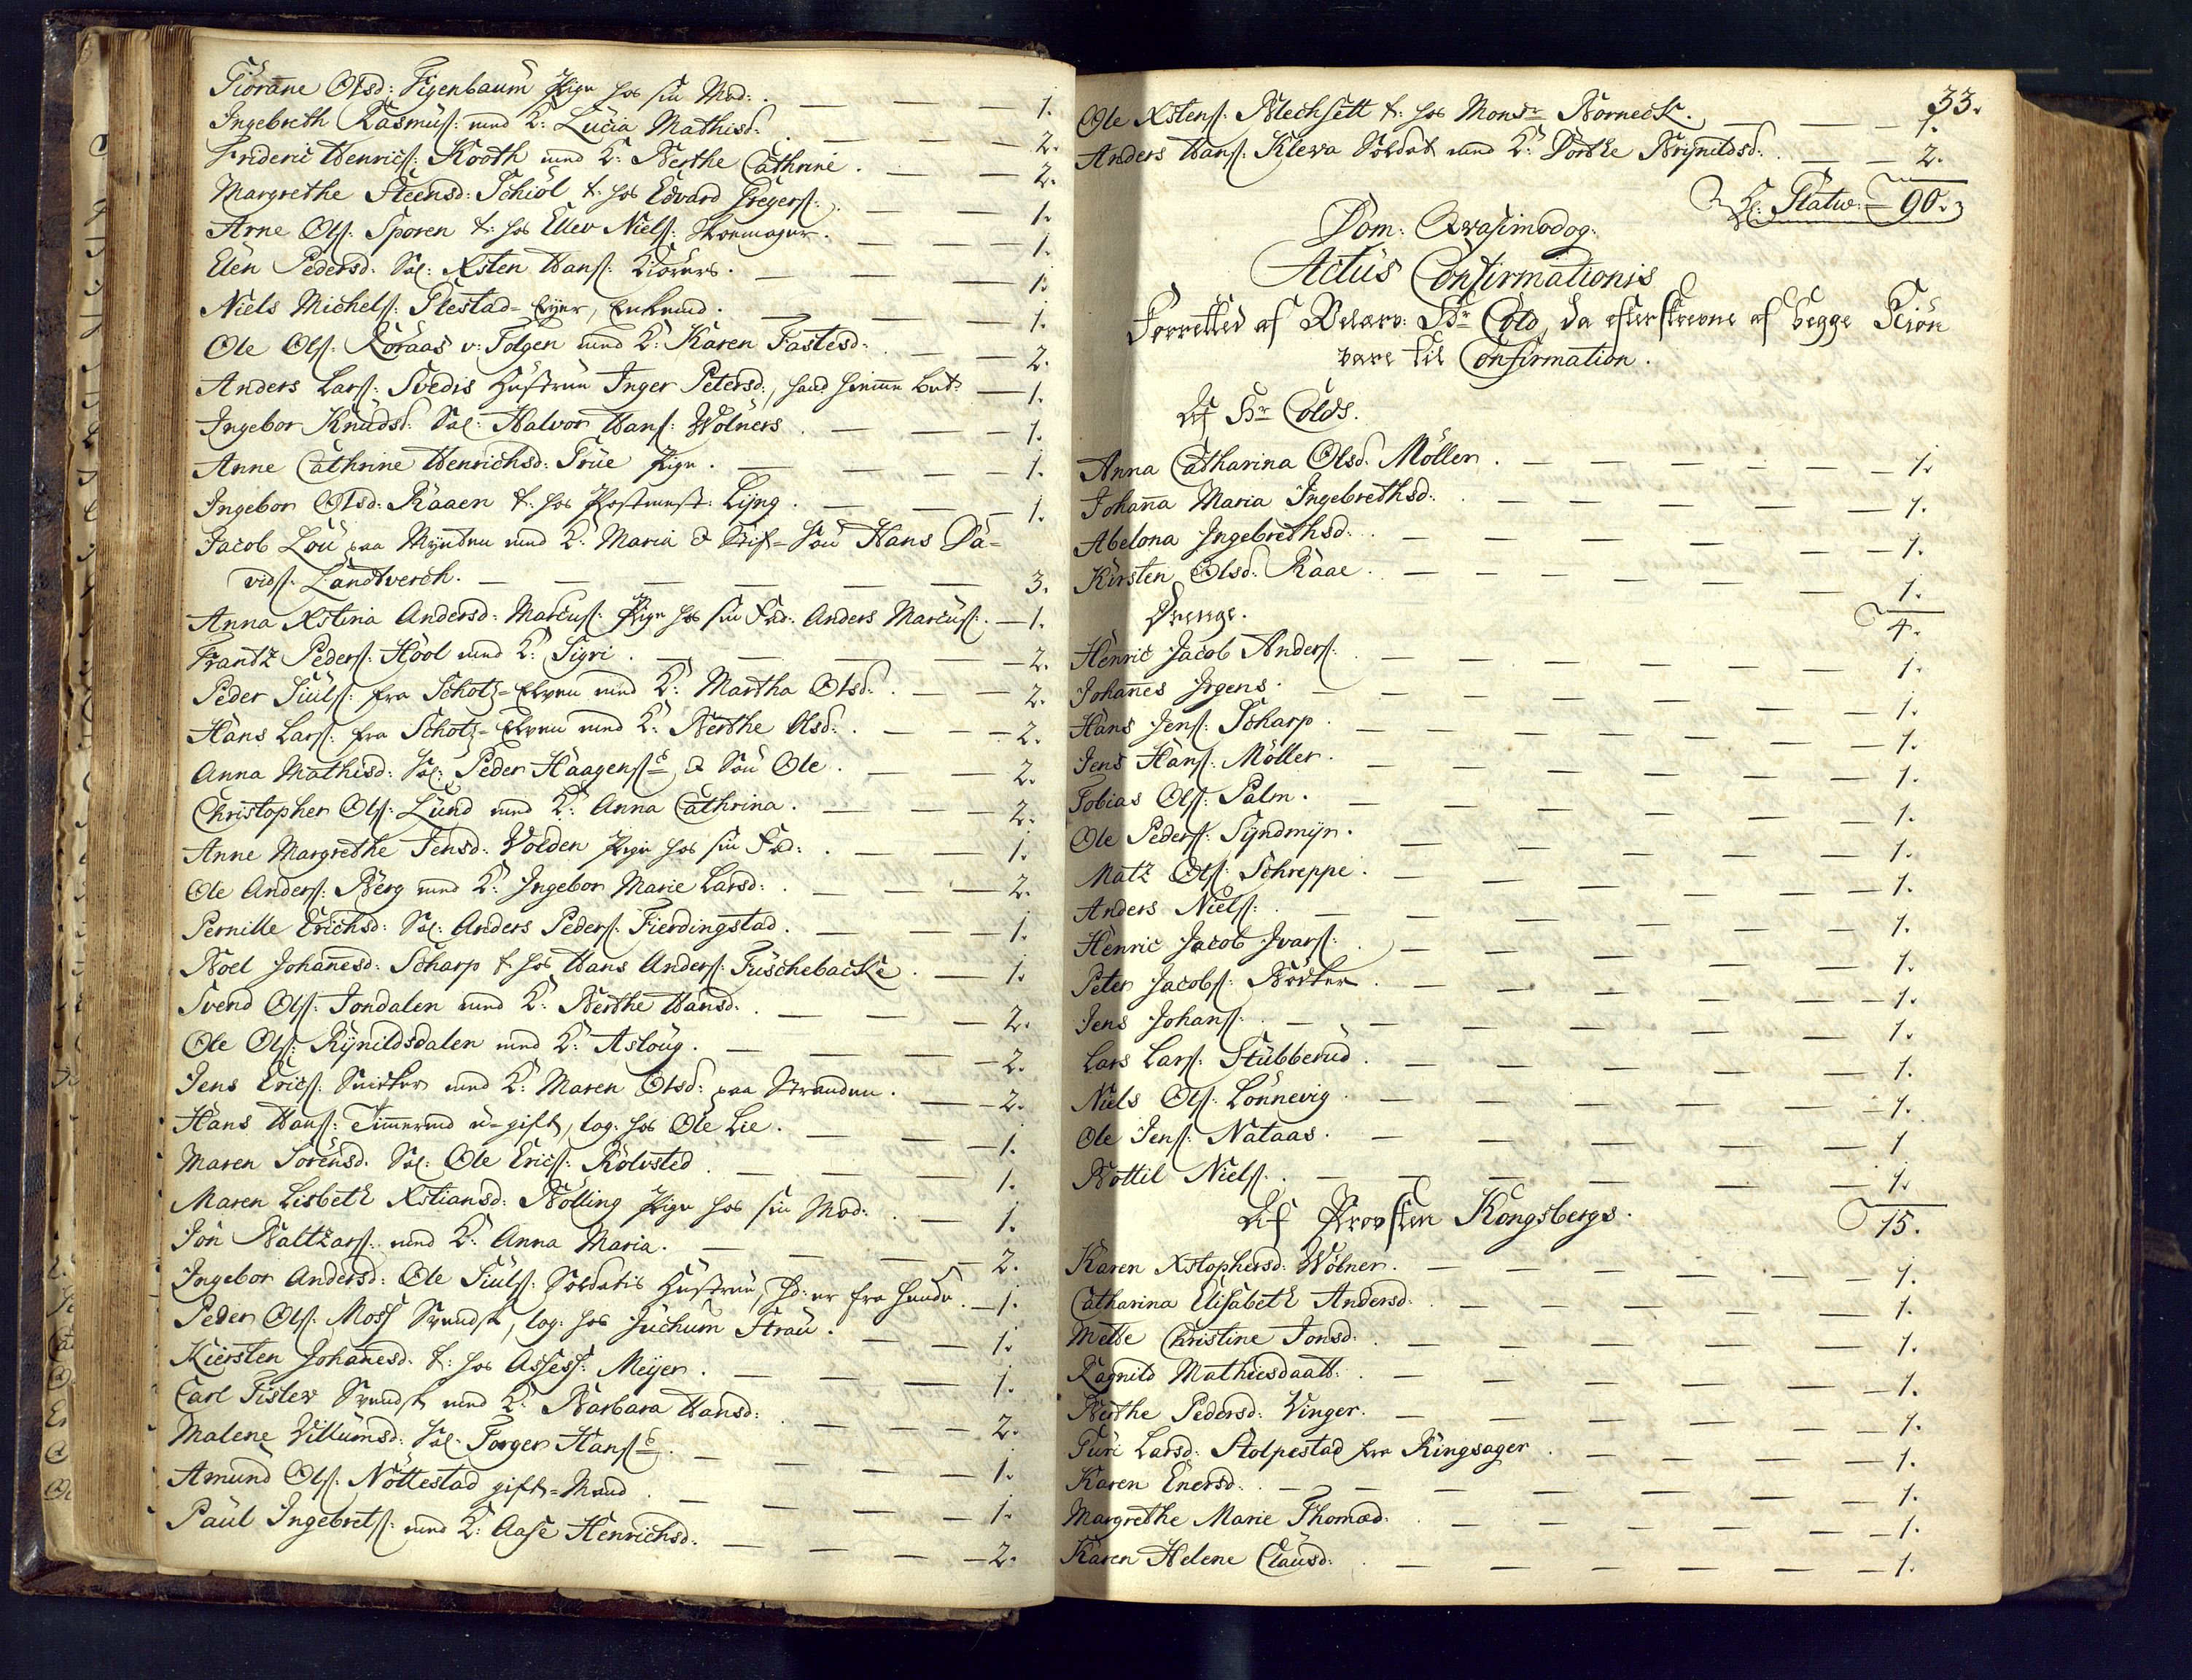 Giorane Olsd: Figenbaum Pige hos sin Mod: . 1.
Ingebreth Rasmusf: med K: Lucia Mathisd: . 2.
Frideric Henricsf: Kooth med K: Berthe Cathrine . 2.
Margrethe Steensd: Schiöl t: hos Edvard Gregersf: . 1.
Arne Olsf: Sporen t: hos Ellev Nielsf: Skomager . 1.
Elen Pedersd: Sal: Xsten Hansf: . 1.
Niels Michelsf: Plestad= Eyer, Enkemd . 1.
Ole Olsf: Röraas v: Tolgen med K: Karen Fastesd: 2.
Anders Larsf: Svedis Hustrue Inger Petersd:, 1.
Ingebor Knudsd: Sal: Halvor Hansf: Wölners . 1.
Anne Cathrine Henrichsd: True Pige . 1.
Ingebor Olsd: Raaen t: hos Postmest: Lyng . 1.
Jacob Lou paa Mynten med K: Maria & Stif=Søn Hans Da=
vidsf: Landtverch . 3.
Anna Xstina Andersd: Marcusf: Pige hos sin Fad: Anders Marcusf: . 1.
Frantz Pedersf: Hool med K: Sigri . 2.
Peder Siulsf: fra Schotz=Elven med K: Martha Olsd: . 2.
Hans Larsf: fra Schotz=Elven med K: Berthe Olsd: . 2.
Anna Mathisd: Sal: Peder Haagensf: & Søn Ole . 2.
Christopher Olsf: Lund med K: Anna Cathrina . 2.
Anne Margrethe Jensd: Volden Pige hos sin Fad: . 1.
Ole Andersf: Berg med K: Ingebor Marie Larsd: . 2.
Pernille Erichsd: Sal: Anders Pedersf: Fierdingstad . 1.
Boel Johanesd: Scharp t: hos Hans Andersf: Fuschebacke . 1.
Svend Olsf: Jondalen med K: Berthe Hansd: . 2.
Ole Olsf: Rynildsdalen med K: Asloug . 2.
Jens Ericsf: Snicker med K: Maren Olsd: paa Stranden . 2.
Hans Hansf: Timermd u=gift, log: hos Ole Lie . 1.
Maren Sörensd: Sal: Ole Ericsf: Rölvsted . 1.
Maren Lisbeth Xstiansd: Bölling Pige hos sin Mod: . 1.
Jon Baltzarsf: med K: Anna Maria . 2.
Ingebor Andersd: Ole Siulsf: Soldatis Hustrue, hd: er fra hende . 1.
Peder Olsf: Moss Svendsk, log: hos Juchum Strau . 1.
Kiersten Johanesd: t: hos Assess: Meyer . 1.
Carl Fislev Svendsk med K: Barbara Hansd: . 2.
Malene Villumsd: Sal: Torger Hansf: . 1.
Amund Olsf: Nöttestad gift=Mand . 1.
Paul Ingebretsf: med K: Aase Henrichsd: 2.
33.
Ole Xstensf: Blechsett t: hos Monsr Borneck . 1.
Anders Hansf: Kleva Soldat med K: Dorthe Brynildsd: . 2.
90.
Dom: Qvasimodog:
Actus Confirmationis
Forretted af Velærv: Hr Cold, da efterskrevne af begge Kiøn
vare til Confirmation .
Af Hr Colds .
Anna Catharina Olsd: Möller . 1.
Johana Maria Ingebrethsd: 1.
Abelona Ingebrethsd: 1.
Kirsten Olsd: Raae . 1.
4.
Drenge .
Henric Jacob Andersf: 1.
Johanes Irgens . 1.
Hans Jensf: Scharp . 1.
Jens Hansf: Möller . 1.
Tobias Olsf: Palm . 1.
Ole Pedersf: Syndmyr . 1.
Matz Olsf: Schreppe . 1.
Anders Nielsf: 1.
Henric Jacob Ivarsf: . 1.
Peter Jacobsf: Bödker . 1.
Jens Johansf: 1.
Lars Larsf: Stubberud . 1.
Niels Olsf: Lönnevig . 1.
Ole Jensf: Nataas . 1
Bottil Nielsf: . 1.
15.
Af Provsten Kongsbergs .
Karen Xstophersd: Wölner . 1.
Catharina Elisabeth Andersd: . 1.
Mette Christine Jonsd: . 1.
Ragnild Mathiesdaatt: . 1.
Berthe Pedersd: Vinger . 1.
Turi Larsd: Stolpestad fra Ringsager . 1.
Karen Enersd: . 1.
Margrethe Marie Thomæd: . 1.
Karen Helene Clausd: . 1.